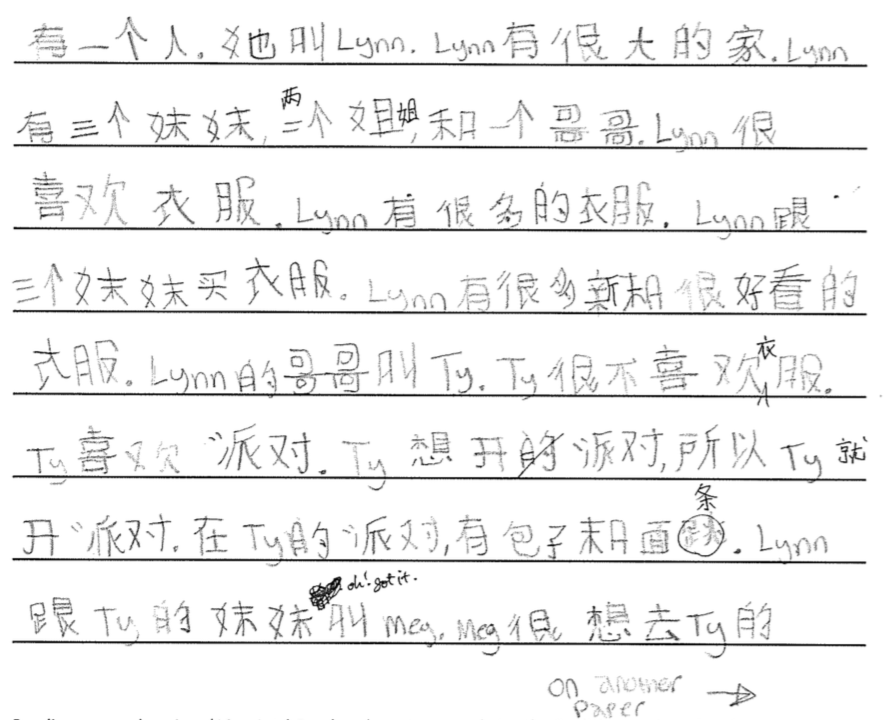 有一个人. 她叫Lynn. Lynn有很大的家. Lynn
有三个妹妹, 二个姐姐, 和一个哥哥. Lynn很
两
喜欢衣服. Lynn有很多的衣服. Lynn跟
三个妹妹买衣服. Lynn有很多新和很好看的
衣服. Lynn的哥哥叫Ty. Ty很不喜欢衣服.
Ty喜欢派对. Ty想开的派对, 所以Ty就
条
开派对. 在Ty的派对, 有包子和面. Lynn
oh! got it.
跟Ty的妹妹叫Meg. Meg很想去Ty的
on another
paper →